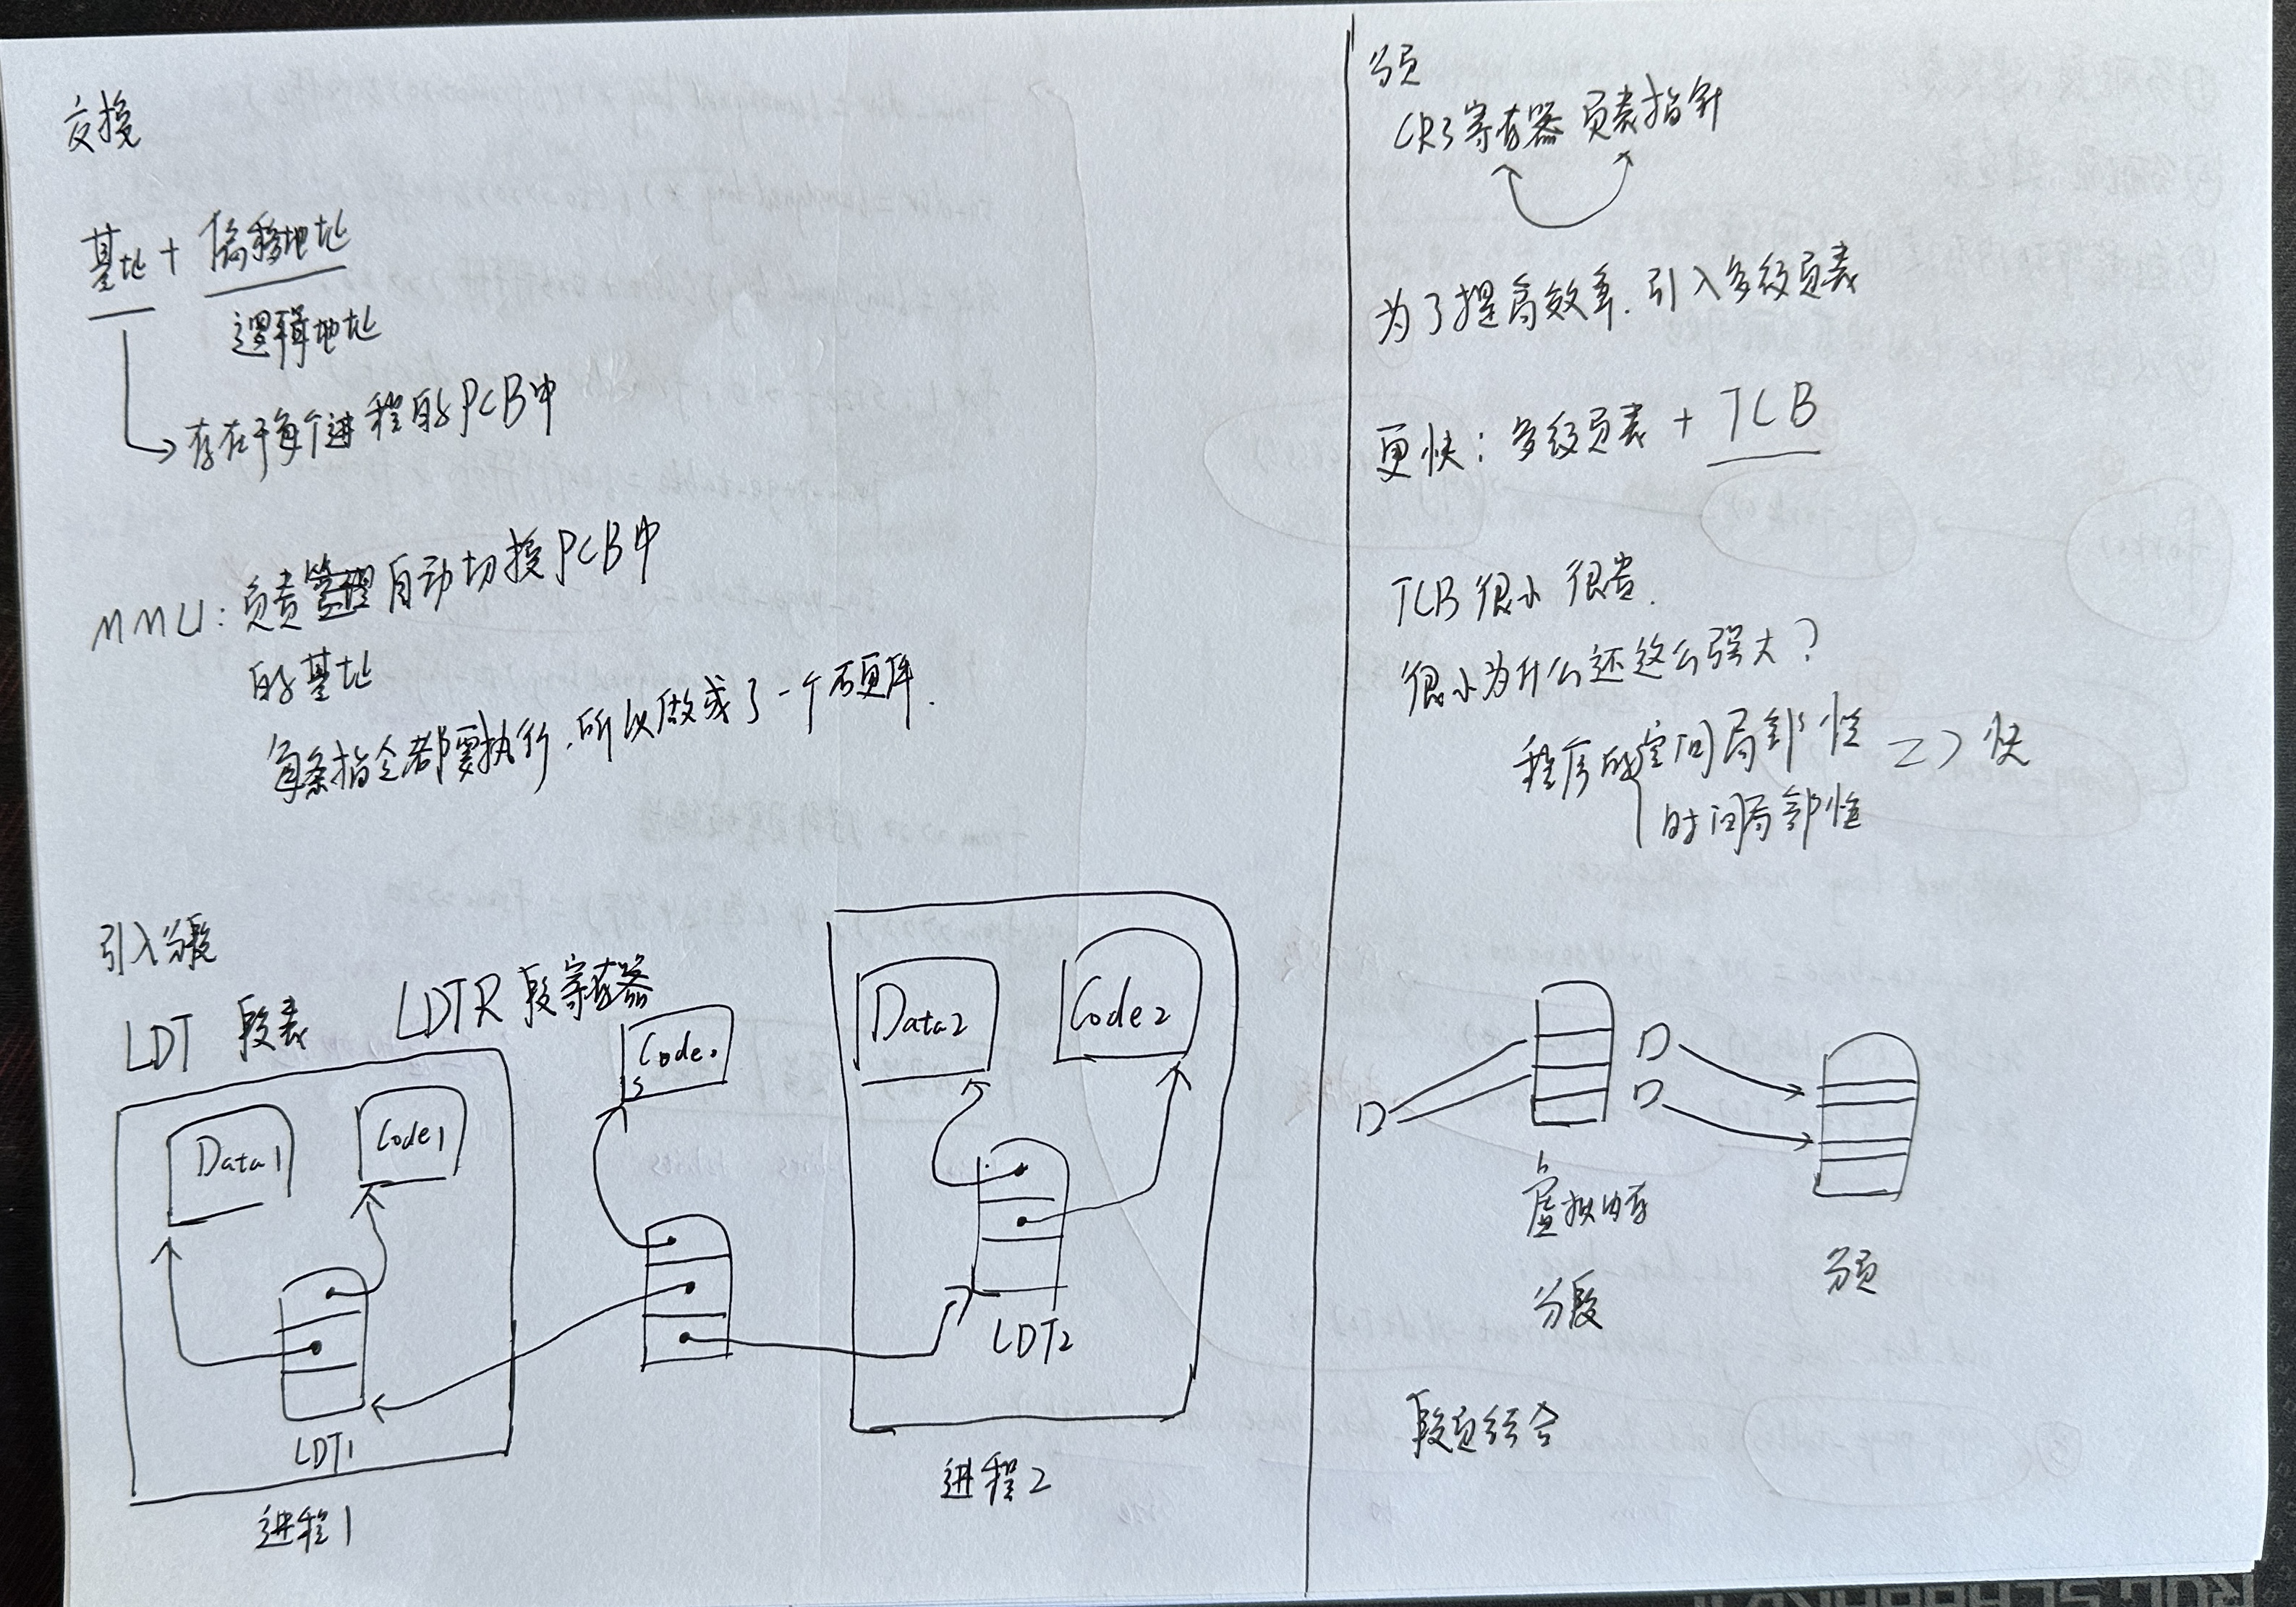 交换
基址 + 偏移地址
逻辑地址
存在于每个进程的PCB中
MMU: 负责 自动切换PCB中
的基址
每条指令都要执行,所以做成了一个硬件.
引入分段
LDT 段表 LDTR 段寄存器
Data1
Code1
LDT1
进程1
Code0
S
Data2
Code2
LDT2
进程2
分页
CR3寄存器 页表指针
为了提高效率,引入多级页表
更快: 多级页表 + TCB
TCB 很小 很贵.
很小为什么还这么强大?
程序的空间局部性 => 快
时间局部性
虚拟内存
分段
分页
段页结合